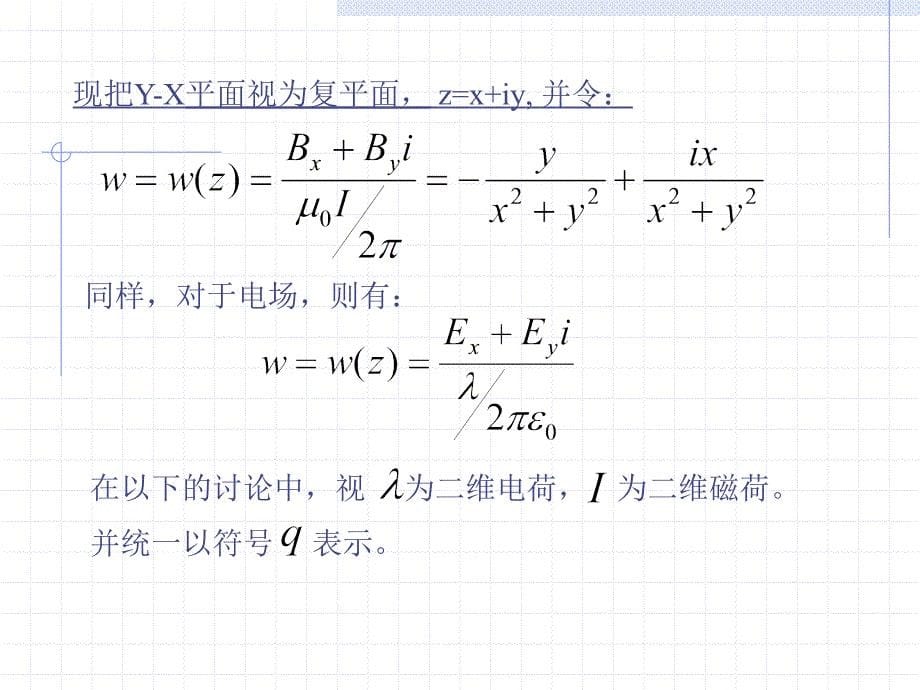 现把Y-X平面视为复平面， z=x+iy, 并令：
w = w(z) = \frac{B_x + B_y i}{\mu_0 I / 2\pi} = -\frac{y}{x^2 + y^2} + \frac{ix}{x^2 + y^2}
同样，对于电场，则有：
w = w(z) = \frac{E_x + E_y i}{\lambda / 2\pi\varepsilon_0}
在以下的讨论中，视 λ为二维电荷，I 为二维磁荷。
并统一以符号 q 表示。